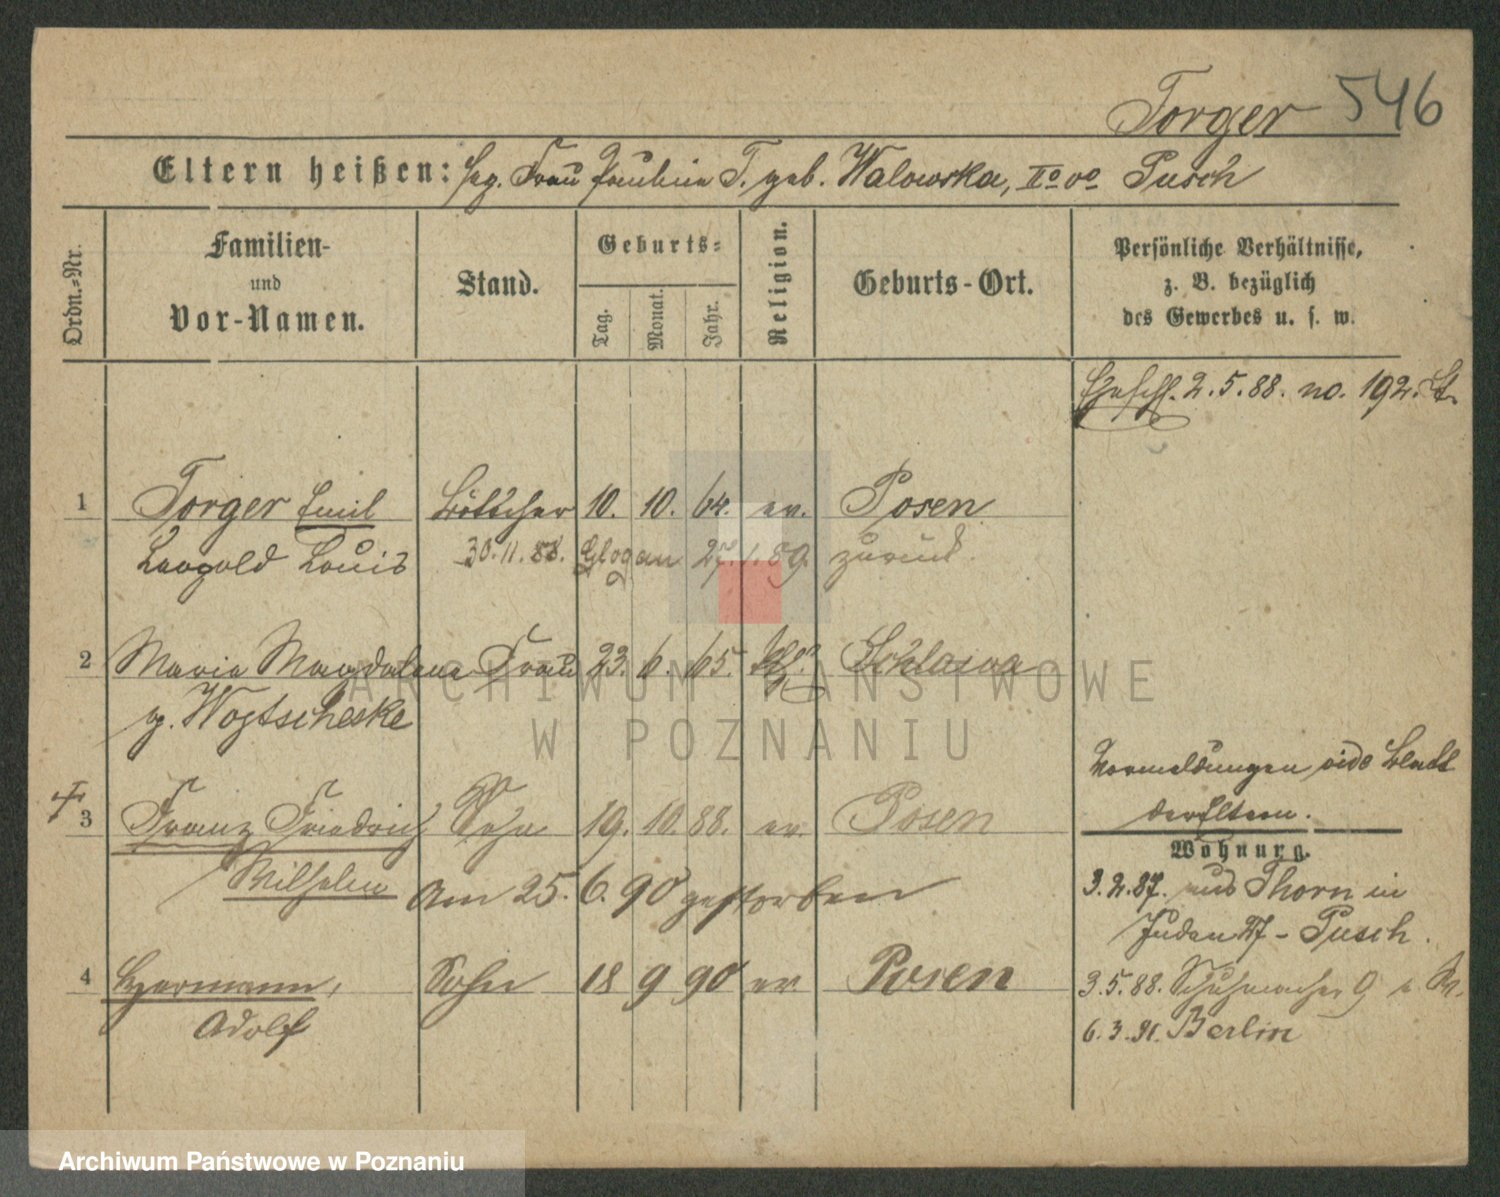 Torger 546
Eltern heißen: Frau Pauline T. geb. Walowska, IIo vo Pusch
Ordn.-Nr.
Familien-
und
Vor-Namen.
Stand.
Geburts-
Tag.
Monat.
Jahr.
Religion.
Geburts-Ort.
Persönliche Verhältnisse,
z. B. bezüglich
des Gewerbes u. s. w.
2.5.88. no. 192.
1 Torger Emil Böttcher 10. 10. 64. ev. Posen
Leopold Louis 30.11.88. Glogau 27.1.89. zurück
2 Maria Magdalena Frau 23. 6. 65. Schlawa
g. Wogtscheske
3 Franz Friedrich Sohn 19. 10. 88. ev. Posen
Wilhelm Am 25. 6. 90 gestorben
4 Hermann, Sohn 18 9 90 ev. Posen
Adolf
Vormeldungen vide Blatt
der Eltern.
Wohnung.
3.2.87. aus Thorn in
Juden 27 - Pusch.
3.5.88. Schuhmacher 9 b. W.
6.3.91. Berlin
ARCHIWUM PAŃSTWOWE
W POZNANIU
Archiwum Państwowe w Poznaniu